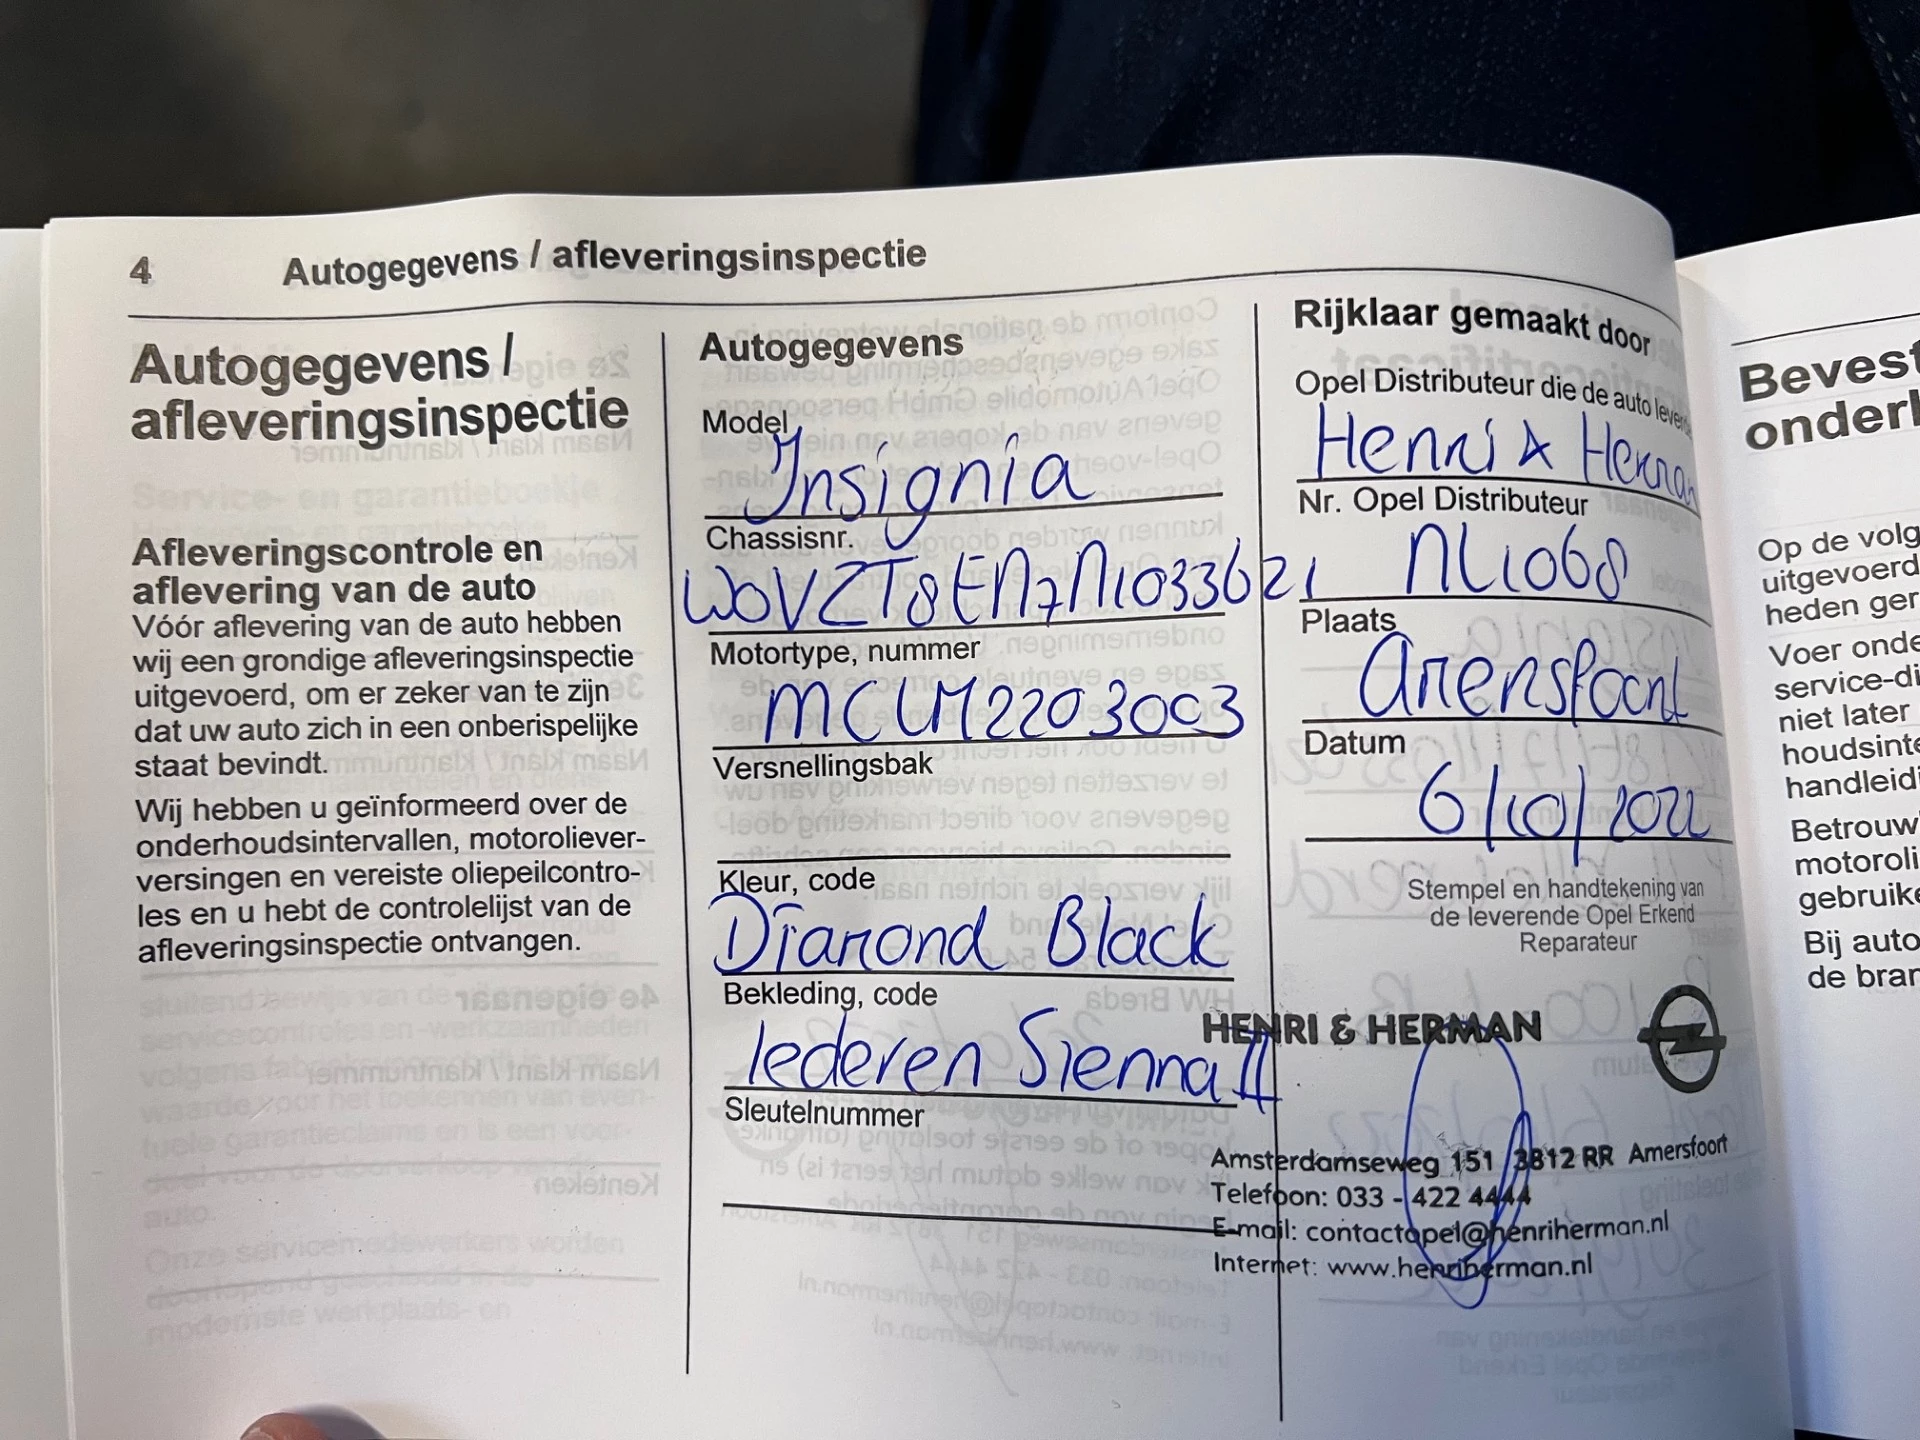 4 Autogegevens / afleveringsinspectie
Autogegevens /
afleveringsinspectie
Afleveringscontrole en
aflevering van de auto
Vóór aflevering van de auto hebben
wij een grondige afleveringsinspectie
uitgevoerd, om er zeker van te zijn
dat uw auto zich in een onberispelijke
staat bevindt.
Wij hebben u geïnformeerd over de
onderhoudsintervallen, motoroliever-
versingen en vereiste oliepeilcontro-
les en u hebt de controlelijst van de
afleveringsinspectie ontvangen.
Autogegevens
Model
Insignia
Chassisnr.
W0VZT8EN7N1033621
Motortype, nummer
MCLM2203003
Versnellingsbak
Kleur, code
Diamond Black
Bekleding, code
lederen Sienna II
Sleutelnummer
Rijklaar gemaakt door
Opel Distributeur die de auto
Henri & Herman
Nr. Opel Distributeur
NL1068
Plaats
Amersfoort
Datum
6/10/2022
Stempel en handtekening van
de leverende Opel Erkend
Reparateur
HENRI & HERMAN
Amsterdamseweg 151 3812 RR Amersfoort
Telefoon: 033 - 422 4444
E-mail: contactopel@henriherman.nl
Internet: www.henriherman.nl
Op de volg
uitgevoerd
heden ger
Voer onde
service-di
niet later
houdsinte
handleidi
Betrouw
motoroli
gebruike
Bij auto
de bran